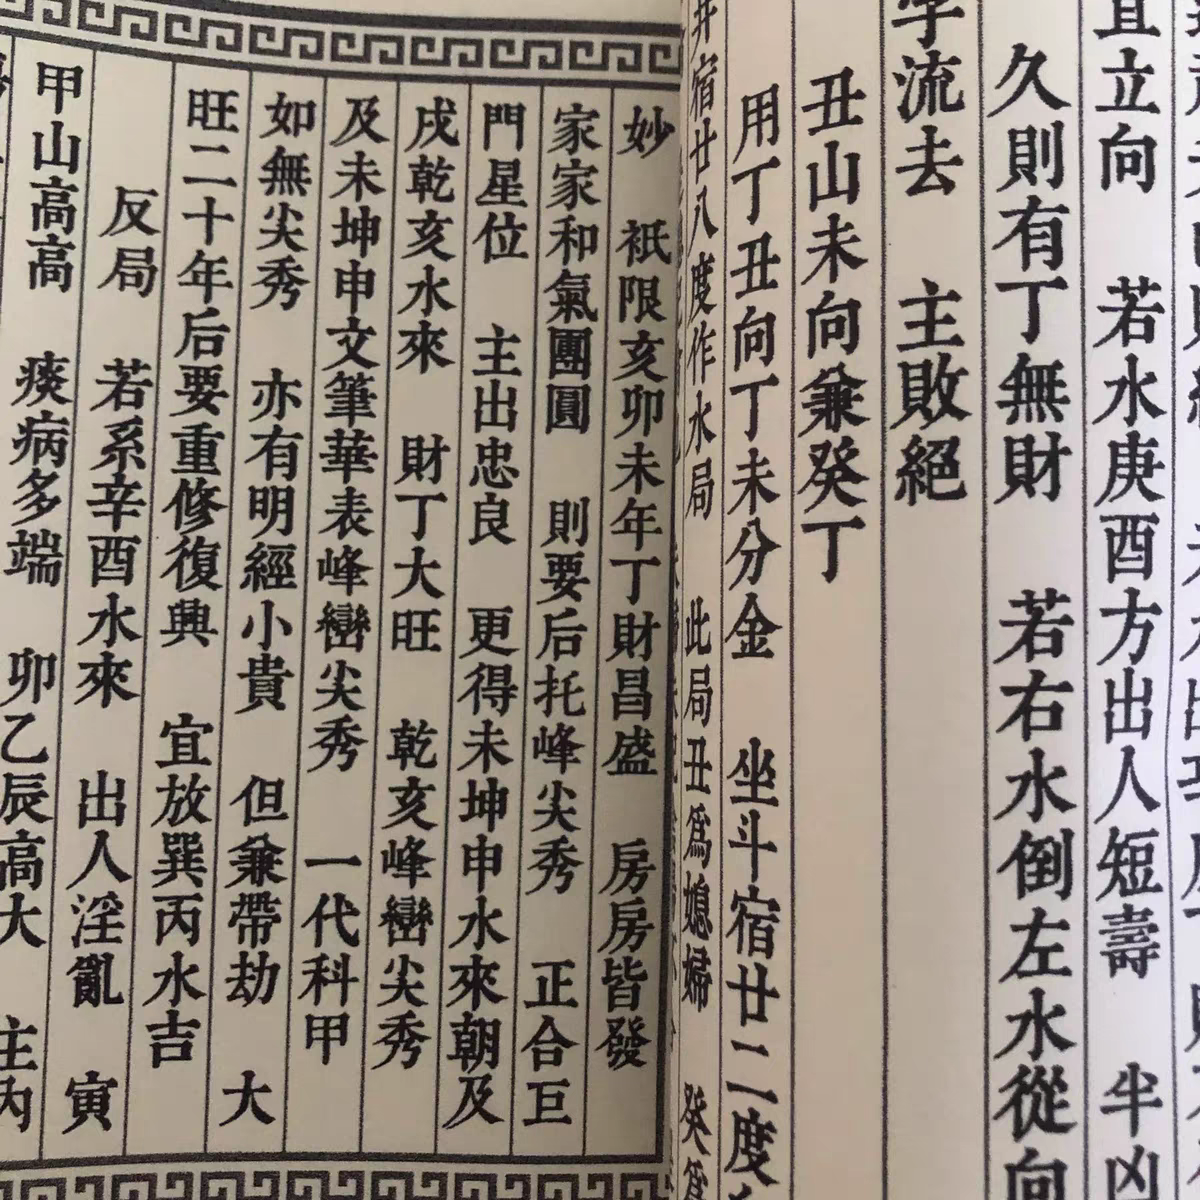 宜立向　若水庚酉方出人短壽　半凶
久則有丁無財　若右水倒左水從向
字流去　主敗絕
丑山未向兼癸丁
用丁丑向丁未分金　坐斗宿廿二度
井宿廿八度作水局　此局丑爲媳婦　癸爲
妙　祇限亥卯未年丁財昌盛　房房皆發
家家和氣團圓　則要后托峰尖秀　正合巨
門星位　主出忠良　更得未坤申水來朝及
戌乾亥水來　財丁大旺　乾亥峰巒尖秀
及未坤申文筆華表峰巒尖秀　一代科甲
如無尖秀　亦有明經小貴　但兼帶劫　大
旺二十年后要重修復興　宜放巽丙水吉
反局　若系辛酉水來　出人淫亂　寅
甲山高高　痰病多端　卯乙辰高大　主內